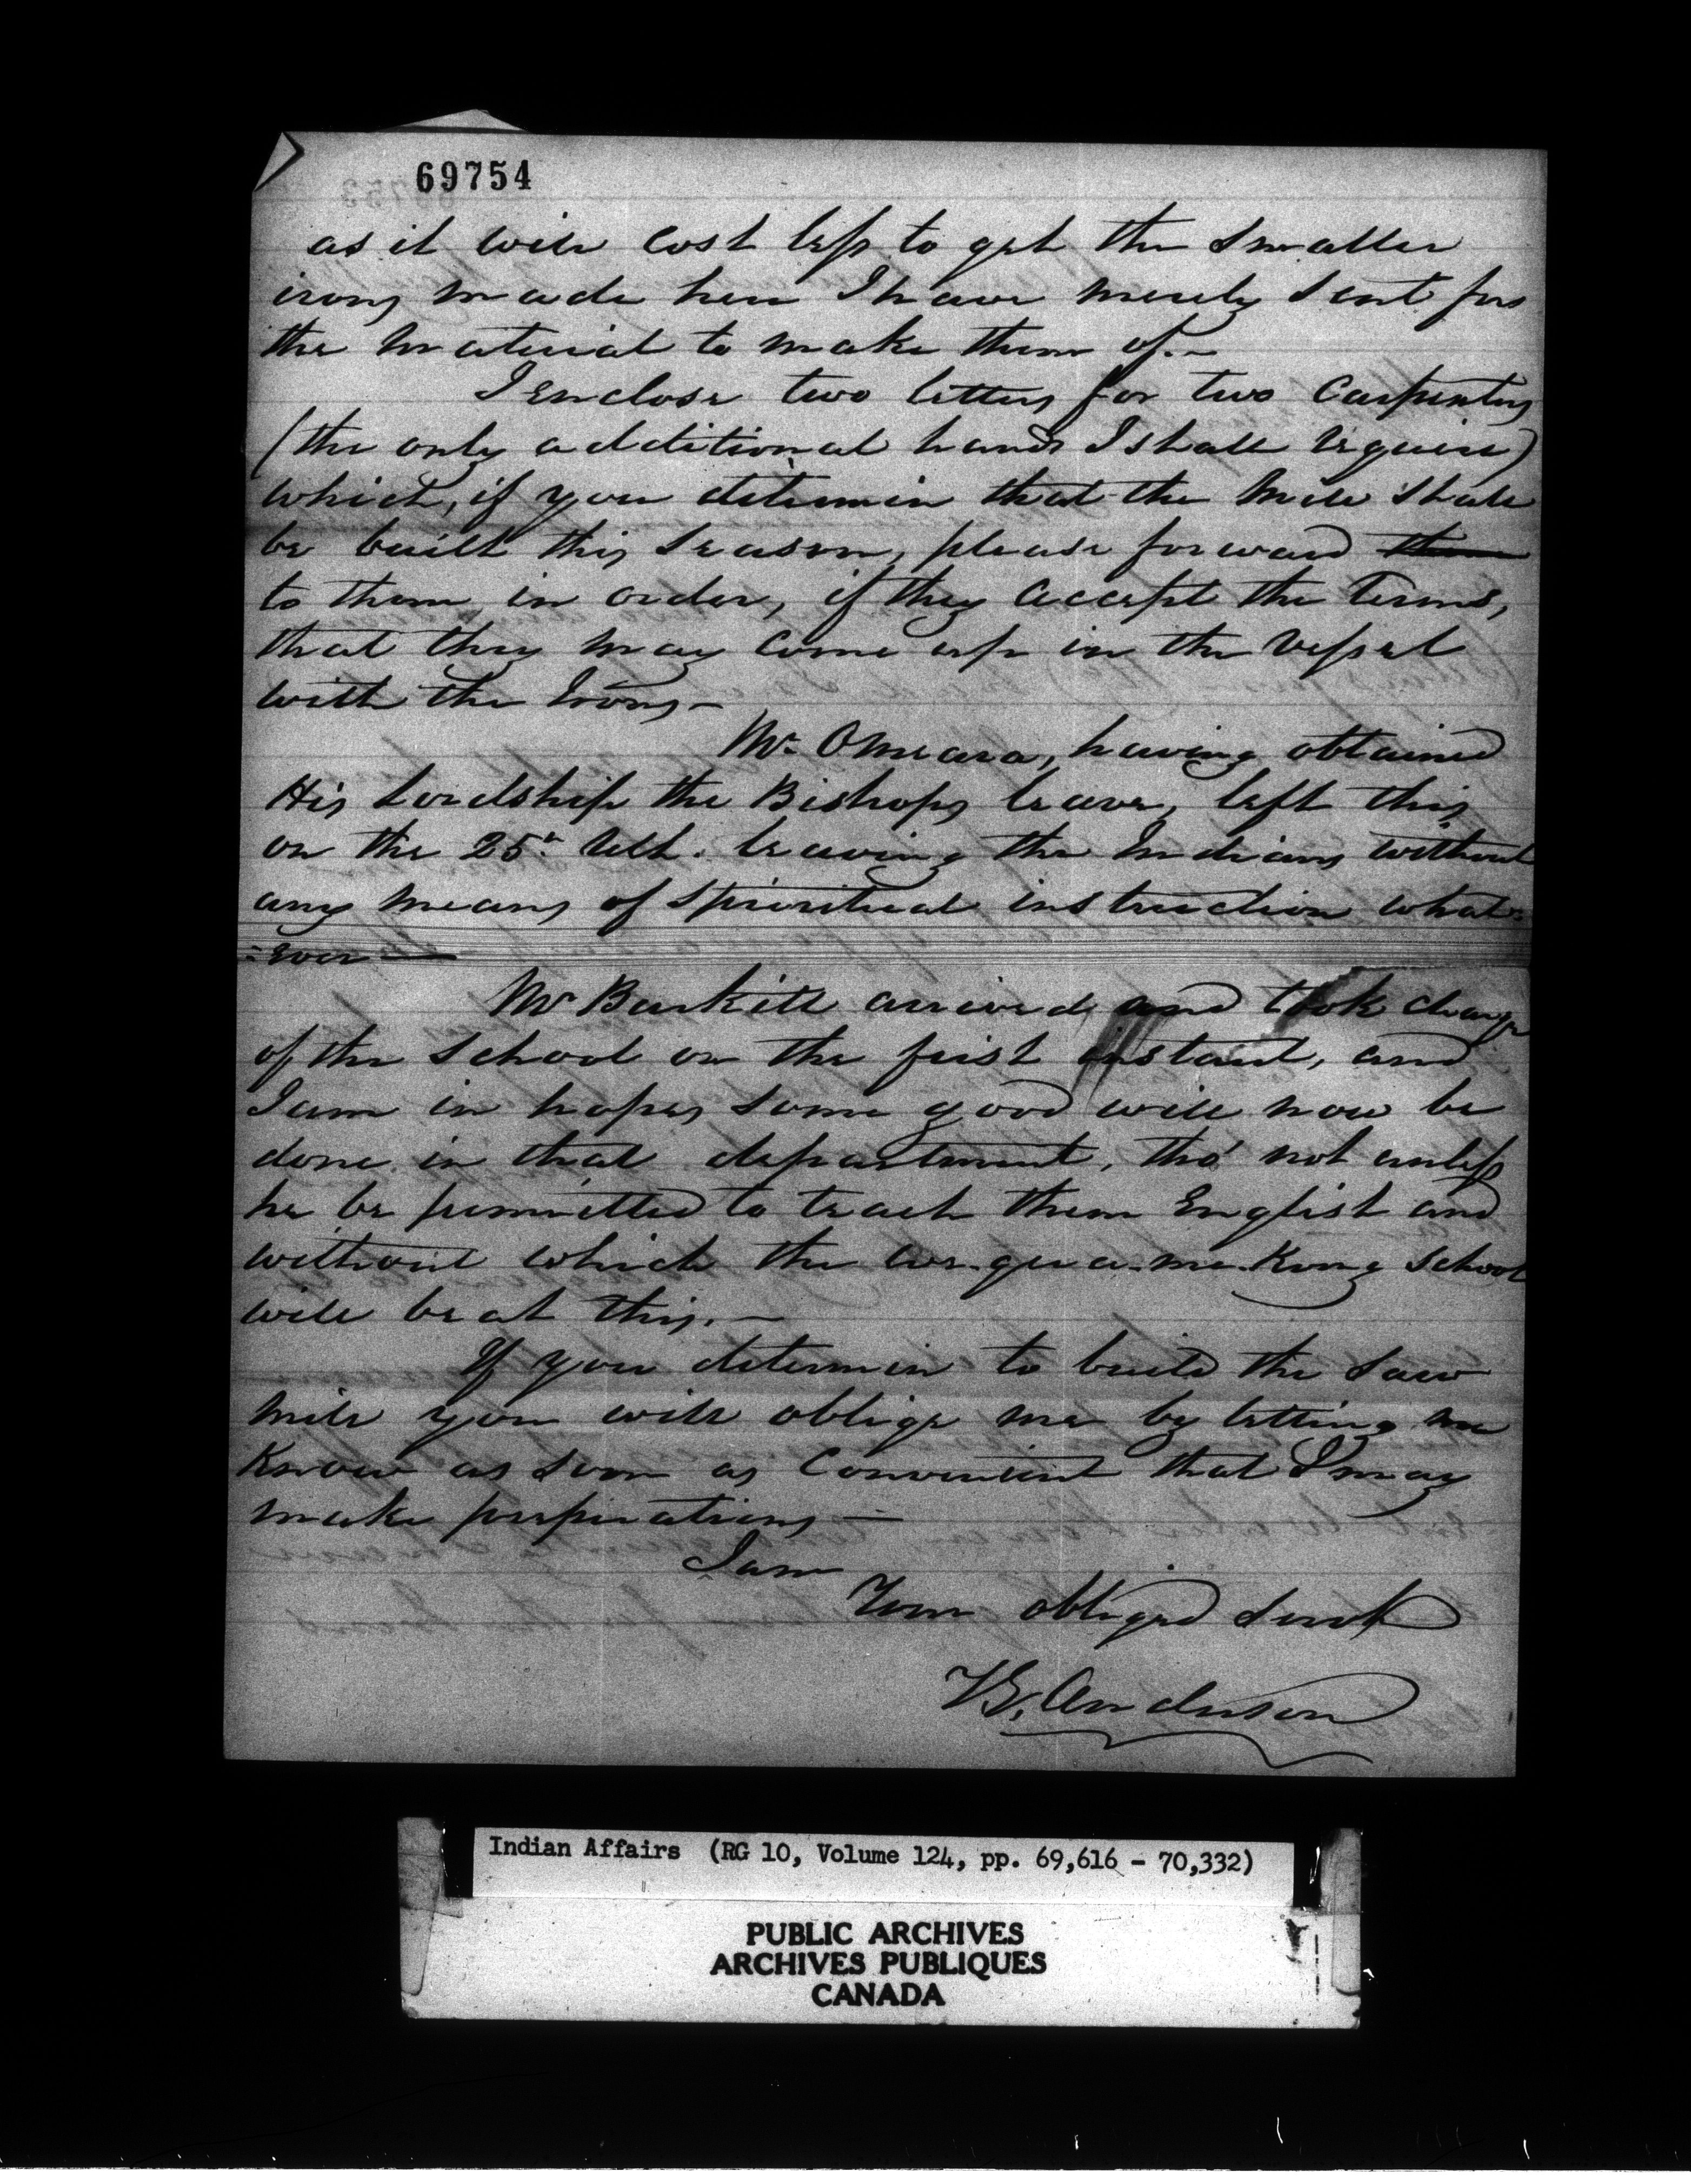 69754
as it will cost less to get the smaller
irons made here I have merely sent for
the material to make them of.—
I enclose two letters for two Carpenters
(the only additional hands I shall require)
which, if you determin that the Mill shall
be built this season, please forward them
to them in order, if they accept the Terms,
that they may come up in the Vessel
with the Irons—
Mr Omeara, having obtained
His Lordship the Bishops leave, left this
on the 25th Ult. leaving the Indians without
any means of spiritual instruction what-
-ever—
Mr Burkitt arrived and took charge
of the School on the first instant, and
I am in hopes some good will now be
done in that department, tho' not unless
he be permitted to teach them English and
without which the we-qua-me-Kong School
will beat this.—
If you determin to build the saw
Mill you will oblige me by letting me
Know as soon as Convenient that I may
make preperations—
I am
Your obliged Servt
TG. Anderson
Indian Affairs (RG 10, Volume 124, pp. 69,616 - 70,332)
PUBLIC ARCHIVES
ARCHIVES PUBLIQUES
CANADA